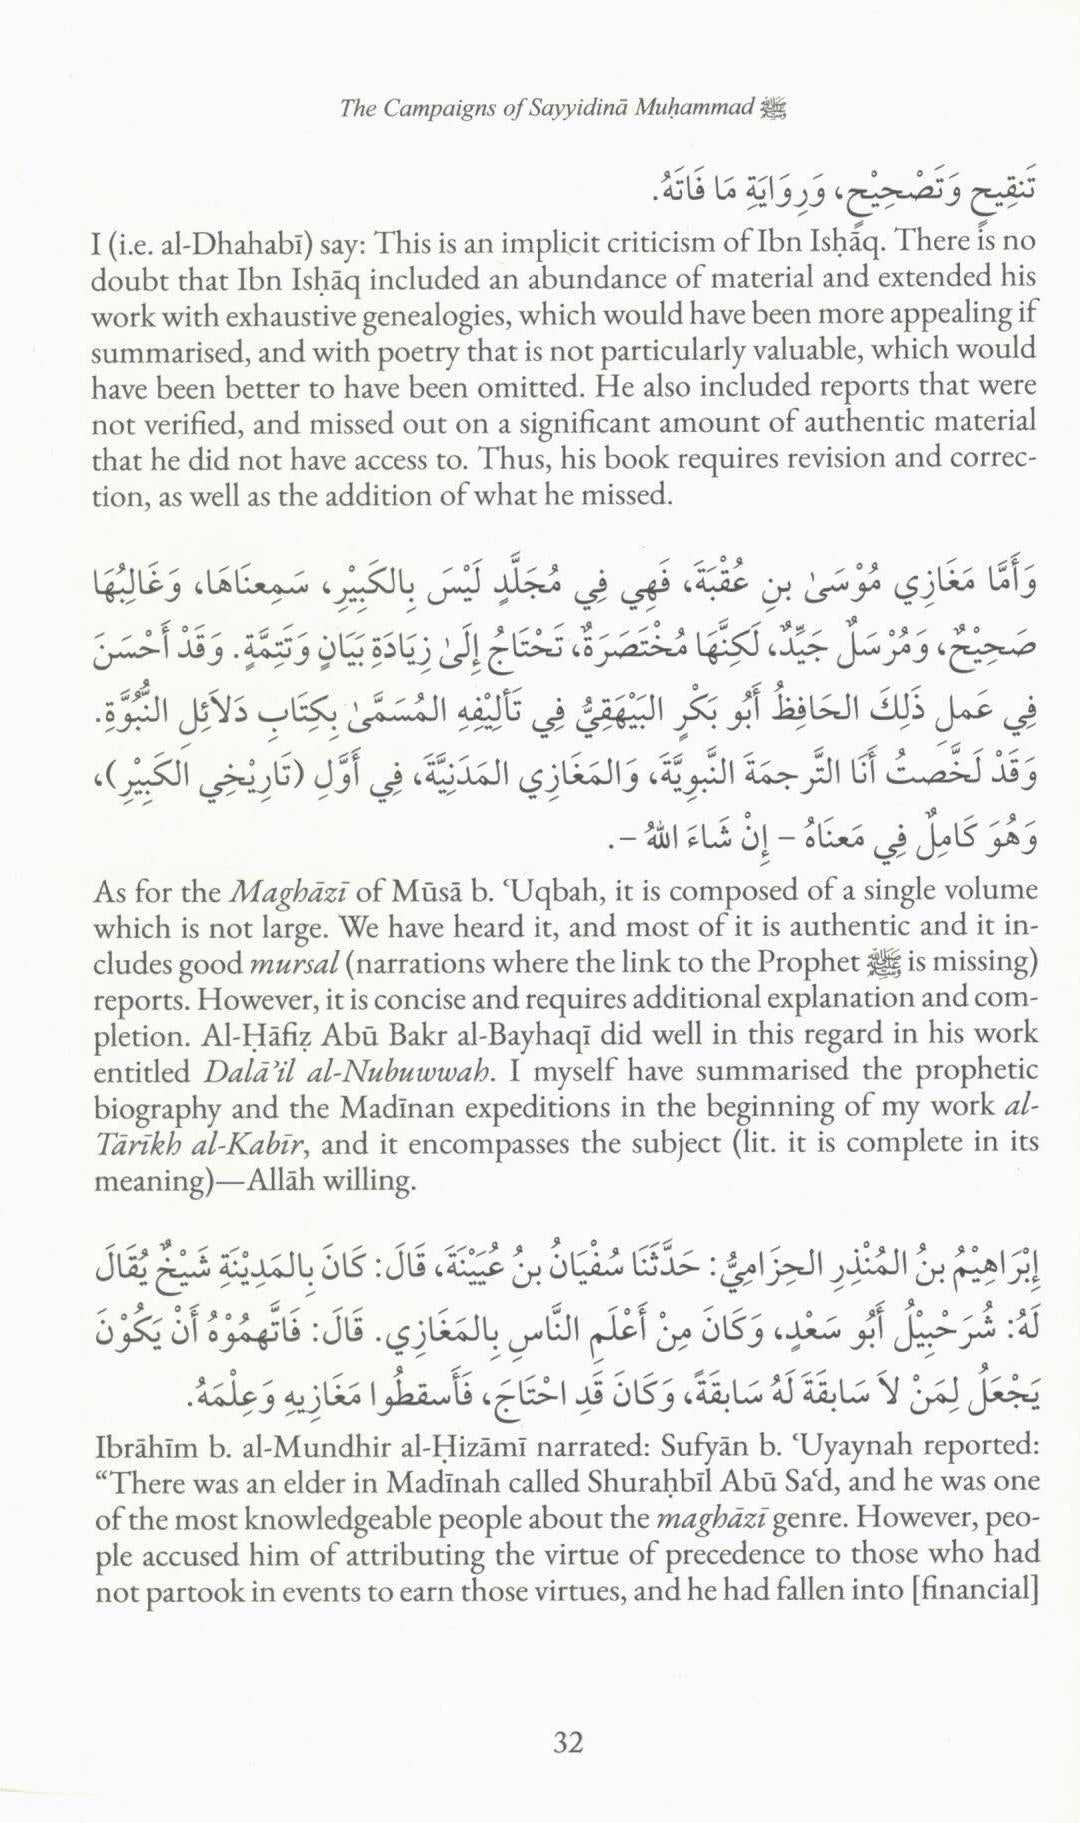 The Campaigns of Sayyidinā Muḥammad ﷺ
تَنقِيحٍ وَتَصْحِيْحٍ، وَرِوَايَةِ مَا فَاتَهُ.
I (i.e. al-Dhahabī) say: This is an implicit criticism of Ibn Isḥāq. There is no
doubt that Ibn Isḥāq included an abundance of material and extended his
work with exhaustive genealogies, which would have been more appealing if
summarised, and with poetry that is not particularly valuable, which would
have been better to have been omitted. He also included reports that were
not verified, and missed out on a significant amount of authentic material
that he did not have access to. Thus, his book requires revision and correc-
tion, as well as the addition of what he missed.
وَأَمَّا مَغَازِي مُوْسَىٰ بنِ عُقْبَةَ، فَهِي فِي مُجَلَّدٍ لَيْسَ بِالكَبِيْرِ، سَمِعنَاهَا، وَغَالِبُهَا
صَحِيْحٌ، وَمُرْسَلٌ جَيِّدٌ، لَكِنَّهَا مُخْتَصَرَةٌ، تَحْتَاجُ إِلَىٰ زِيَادَةِ بَيَانٍ وَتَتِمَّةٍ. وَقَدْ أَحْسَنَ
فِي عَملِ ذَلِكَ الحَافِظُ أَبُو بَكْرٍ البَيْهَقِيُّ فِي تَأْلِيْفِهِ المُسَمَّىٰ بِكِتَابِ دَلاَئِلِ النُّبُوَّةِ.
وَقَدْ لَخَّصتُ أَنَا التَّرجمَةَ النَّبوِيَّةَ، وَالمَغَازِي المَدَنِيَّةَ، فِي أَوَّلِ (تَارِيْخِي الكَبِيْرِ)،
وَهُوَ كَامِلٌ فِي مَعنَاهُ – إِنْ شَاءَ اللهُ –.
As for the Maghāzī of Mūsā b. ʿUqbah, it is composed of a single volume
which is not large. We have heard it, and most of it is authentic and it in-
cludes good mursal (narrations where the link to the Prophet ﷺ is missing)
reports. However, it is concise and requires additional explanation and com-
pletion. Al-Ḥāfiẓ Abū Bakr al-Bayhaqī did well in this regard in his work
entitled Dalā’il al-Nubuwwah. I myself have summarised the prophetic
biography and the Madīnan expeditions in the beginning of my work al-
Tārīkh al-Kabīr, and it encompasses the subject (lit. it is complete in its
meaning)—Allāh willing.
إِبْرَاهِيْمُ بنُ المُنْذِرِ الحِزَامِيُّ: حَدَّثَنَا سُفْيَانُ بنُ عُيَيْنَةَ، قَالَ: كَانَ بِالمَدِيْنَةِ شَيْخٌ يُقَالَ
لَهُ: شُرَحْبِيْلُ أَبُو سَعْدٍ، وَكَانَ مِنْ أَعْلَمِ النَّاسِ بِالمَغَازِي. قَالَ: فَاتَّهمُوْهُ أَنْ يَكُوْنَ
يَجْعَلُ لِمَنْ لاَ سَابِقَةَ لَهُ سَابِقَةً، وَكَانَ قَدِ احْتَاجَ، فَأَسقطُوا مَغَازِيه وَعِلْمَهُ.
Ibrāhīm b. al-Mundhir al-Ḥizāmī narrated: Sufyān b. ʿUyaynah reported:
“There was an elder in Madīnah called Shuraḥbīl Abū Saʿd, and he was one
of the most knowledgeable people about the maghāzī genre. However, peo-
ple accused him of attributing the virtue of precedence to those who had
not partook in events to earn those virtues, and he had fallen into [financial]
32